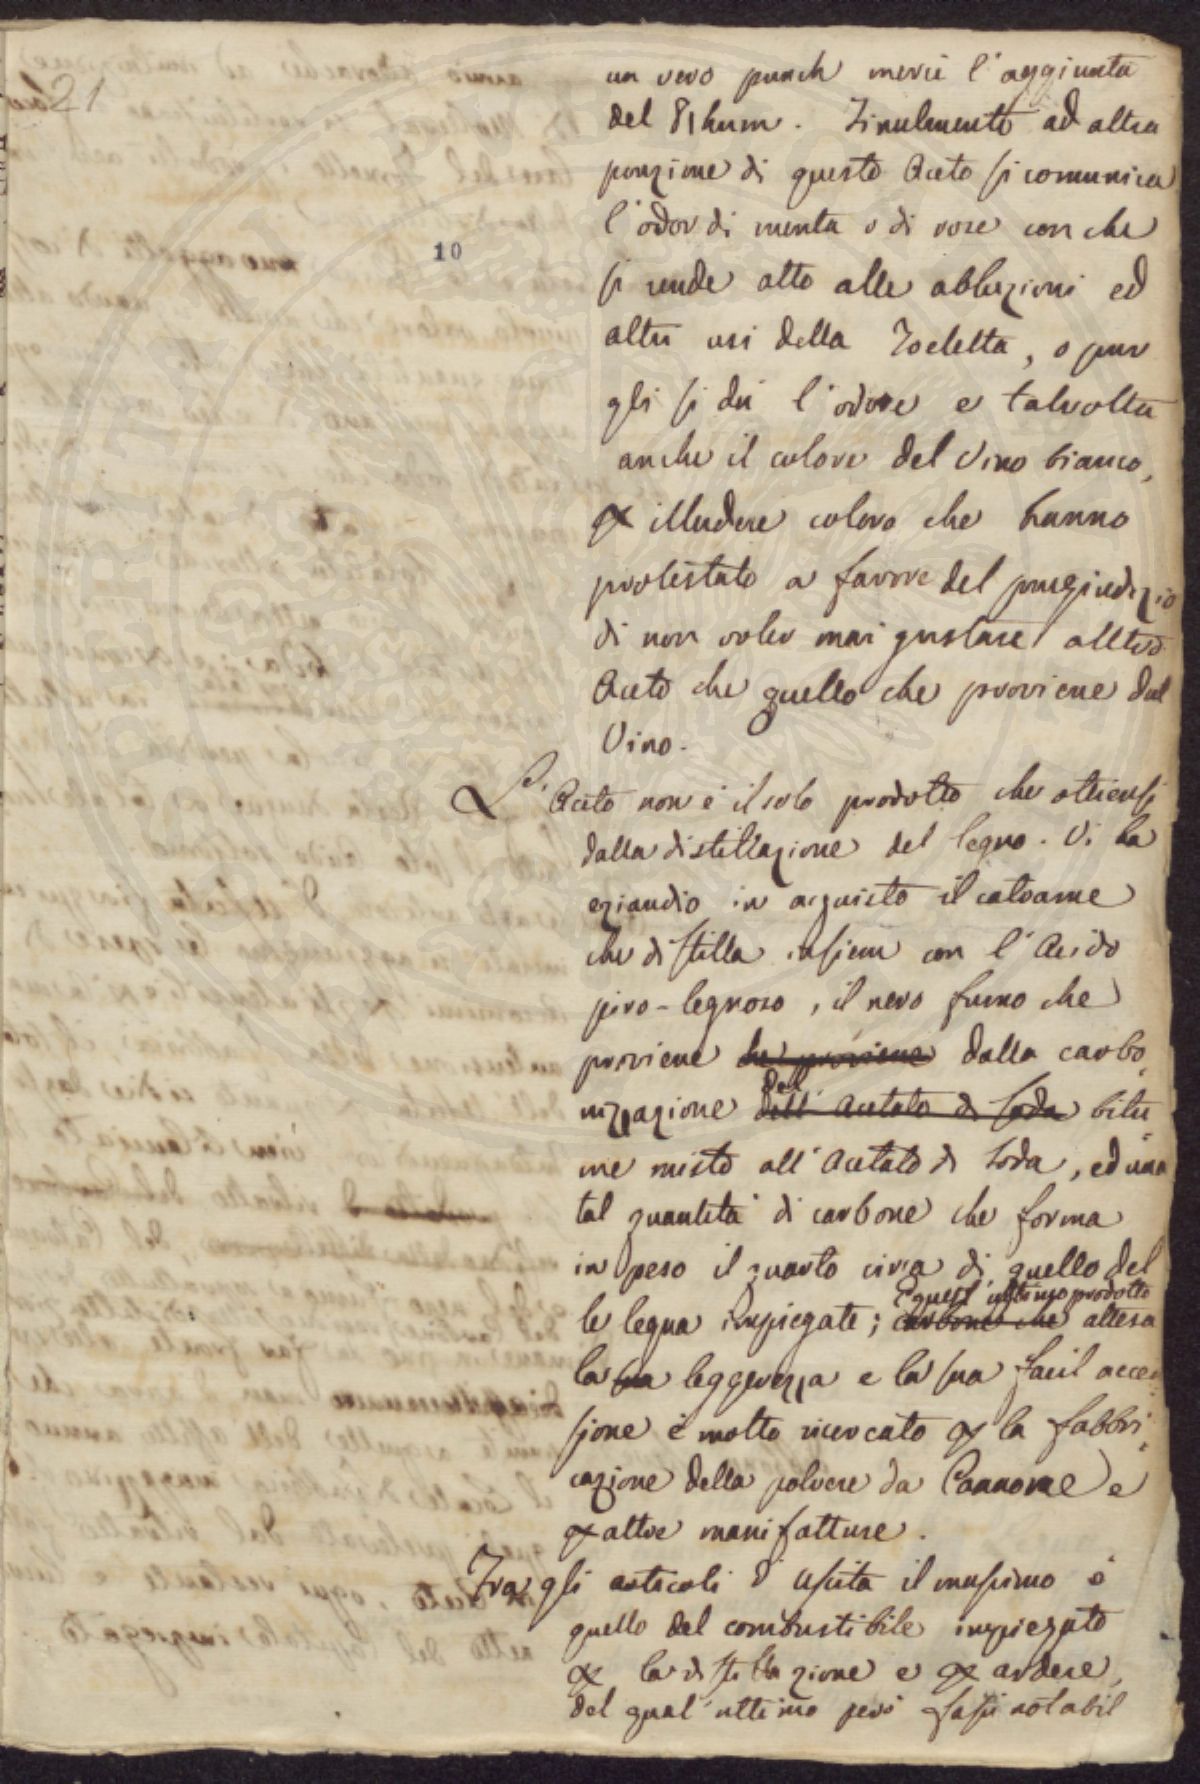 21
10
un vero punch mercè l'aggiunta
del Rhum. Finalmente ad altra
porzione di questo Aceto si comunica
l'odor di menta o di rose con che
si rende atto alle abluzioni ed
altri usi della Toeletta, o pur
gli si dà l'odore e talvolta
anche il colore del Vino bianco,
p illudere coloro che hanno
protestato a favore del pregiudizio
di non voler mai gustare altro
Aceto che quello che proviene dal
Vino.
L'Aceto non è il solo prodotto che ottiensi
dalla distillazione del legno. Vi ha
eziandio in acquisto il catrame
che distilla insiem con l'Acido
piro-legnoso, il nero fumo che
proviene che proviene dalla carbo
nizzazione dell' Acetato di Soda del bitu
me misto all'Acetato di Soda, ed una
tal quantità di carbone che forma
in peso il quarto circa di quello del
le legna impiegate; carbone che E quest'ultimo prodotto attesa
la sua leggerezza e la sua facil accen
sione è molto ricercato p la fabbri
cazione della polvere da Cannone e
p altre manifatture.
Fra gli articoli d'Uscita il massimo è
quello del combustibile impiegato
p la distillazione e p ardere,
del qual'ultimo però fassi notabil